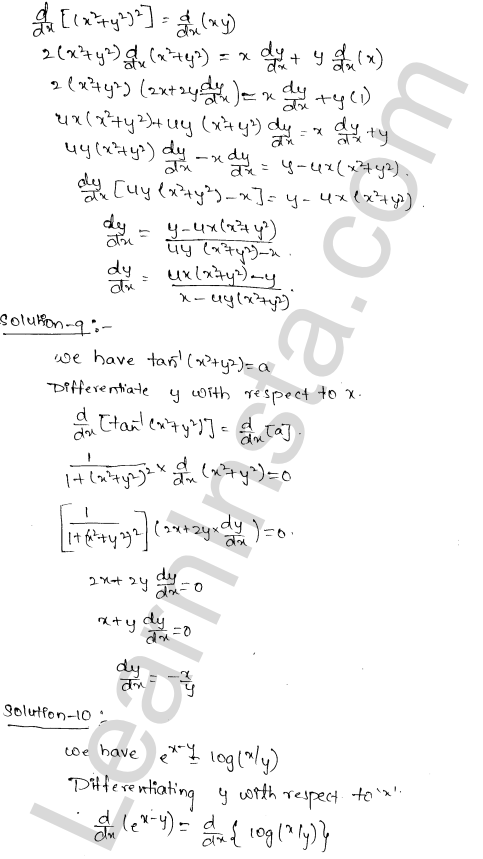 d/dx [(x²+y²)²] = d/dx (xy)
2(x²+y²) d/dx (x²+y²) = x dy/dx + y d/dx (x)
2(x²+y²) (2x+2y dy/dx) = x dy/dx + y(1)
4x(x²+y²)+4y (x²+y²) dy/dx = x dy/dx + y
4y(x²+y²) dy/dx - x dy/dx = y - 4x(x²+y²).
dy/dx [4y(x²+y²) - x] = y - 4x(x²+y²).
dy/dx = y-4x(x²+y²) / 4y (x²+y²)-x .
dy/dx = 4x(x²+y²)-y / x-4y(x²+y²).
Solution-9:-
We have tan⁻¹(x²+y²)=a
Differentiate y with respect to x.
d/dx [tan⁻¹(x²+y²)] = d/dx [a].
1/1+(x²+y²)² × d/dx (x²+y²)=0
[1/1+(x²+y²)²] (2x+2y× dy/dx) = 0.
2x+2y dy/dx = 0
x+y dy/dx = 0
dy/dx = -x/y
Solution-10:-
We have e^x-y = log(x/y)
Differentiating y with respect to 'x'.
d/dx (e^x-y) = d/dx { log(x/y)}
LearnInsta.com